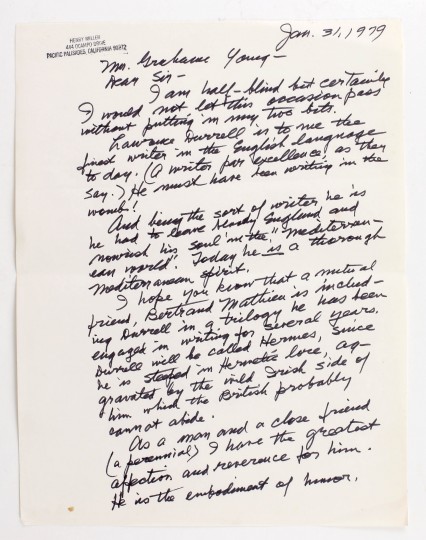 HENRY MILLER
444 OCAMPO DRIVE
PACIFIC PALISADES, CALIFORNIA 90272
Jan. 31, 1979
Mr. Grahame Young –
Dear Sir –
I am half-blind but certainly
I would not let this occasion pass
without putting in my two bits.
Lawrence Durrell is to me the
finest writer in the English language
to day. (A writer par excellence, as they
say.) He must have been writing in the
womb!
And being the sort of writer he is
he had to leave bloody England and
nourish his soul in the "Mediterran-
ean world". Today he is a thorough
Mediterranean spirit.
I hope you know that a mutual
friend, Bertrand Mathieu is includ-
ing Durrell in a trilogy he has been
engaged in writing for several years.
Durrell will be called Hermes, since
he is steeped in Hermetic lore, ag-
gravated by the wild Irish side of
him which the British probably
cannot abide.
As a man and a close friend
(a perennial) I have the greatest
affection and reverence for him.
He is the embodiment of humor.